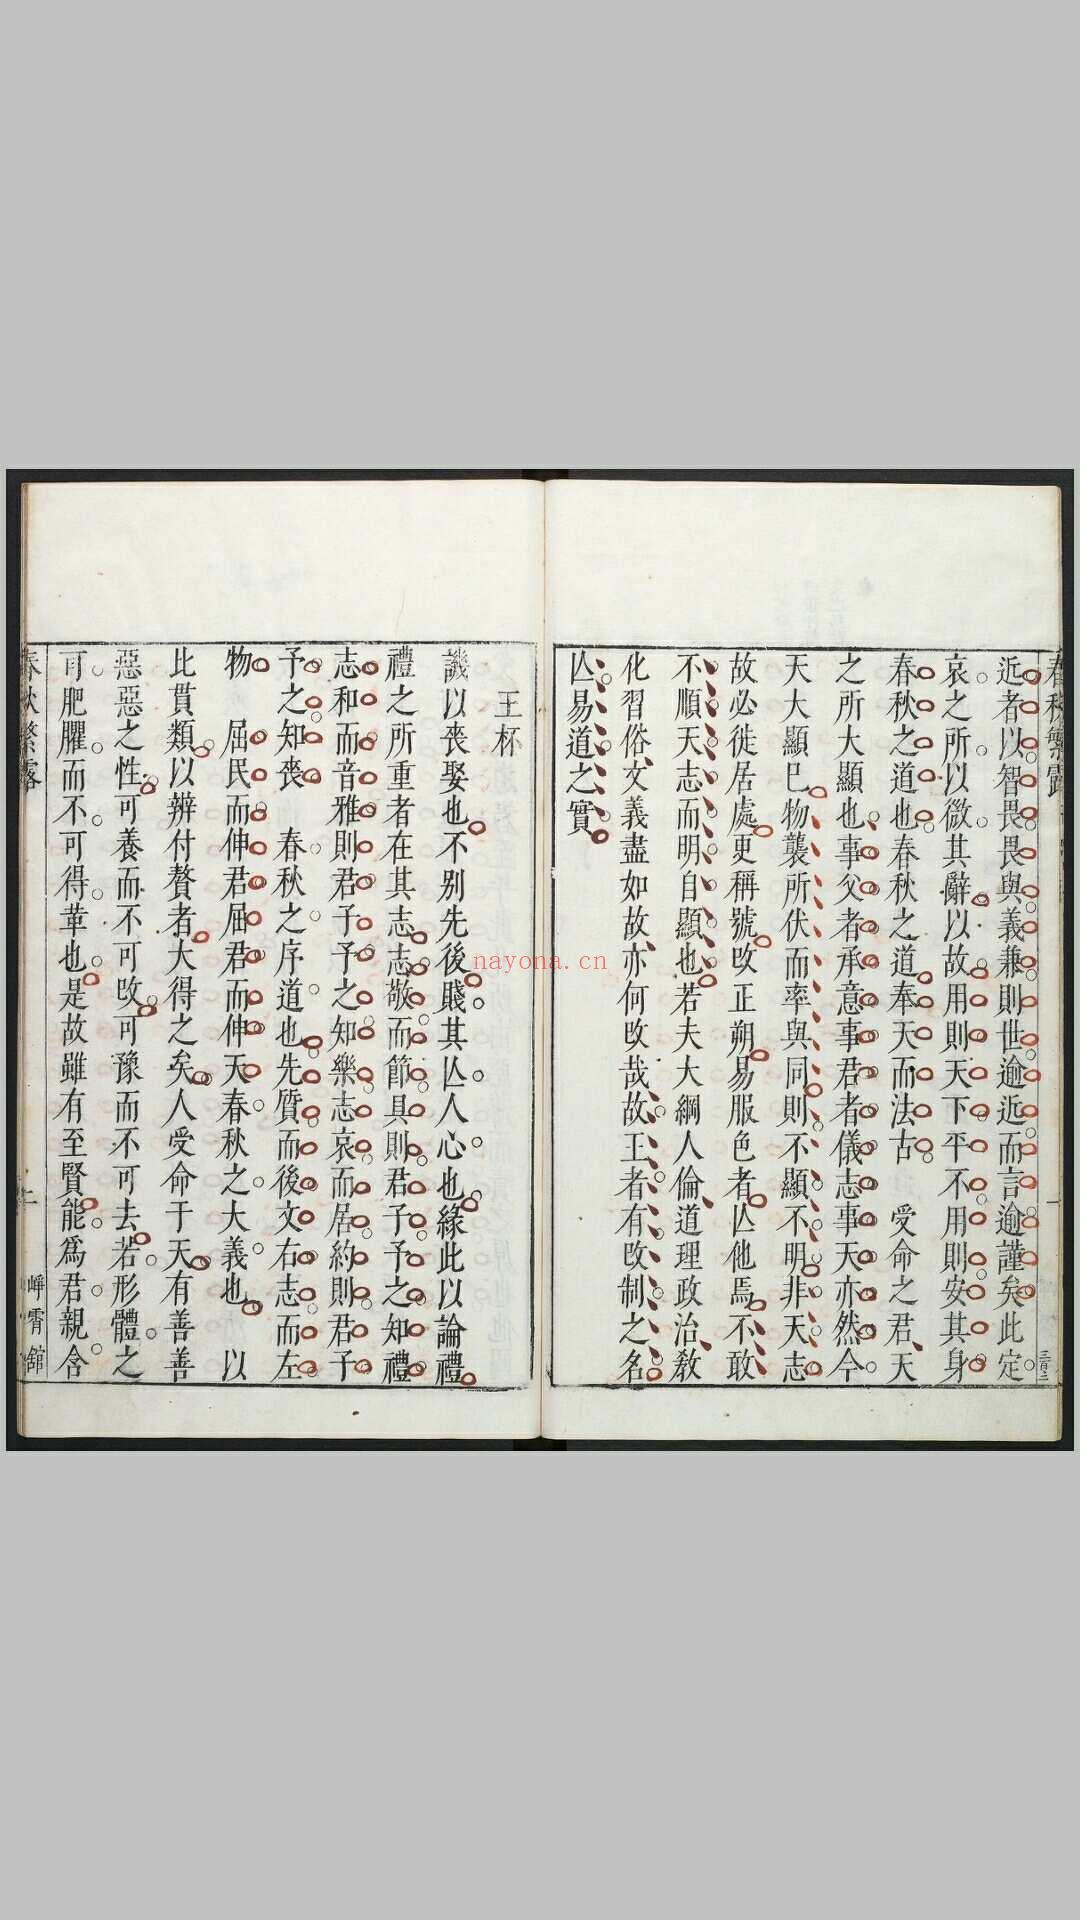 春秋繁露
一
三百二
近者以智畏畏與義兼則世逾近而言逾謹矣此定
哀之所以微其辭以故用則天下平不用則安其身
春秋之道也春秋之道奉天而法古　受命之君天
之所大顯也事父者承意事君者儀志事天亦然今
天大顯巳物襲所伏而率與同則不顯不明非天志
故必徙居處更稱號攺正朔易服色者亾他焉不敢
不順天志而明自顯也若夫大綱人倫道理政治敎
化習俗文義盡如故亦何攺哉故王者有攺制之名
亾易道之實
王杯
譏以喪娶也不别先後賤其亾人心也緣此以論禮
禮之所重者在其志志敬而節具則君子予之知禮
志和而音雅則君子予之知樂志哀而居約則君子
予之知喪　春秋之序道也先質而後文右志而左
物　屈民而伸君屈君而伸天春秋之大義也　以
比貫類以辨付贅者大得之矣人受命于天有善善
惡惡之性可養而不可攺可豫而不可去若形體之
可肥臞而不可得革也是故雖有至賢能爲君親含
春秋繁露
二
崢霄館
nayona.cn